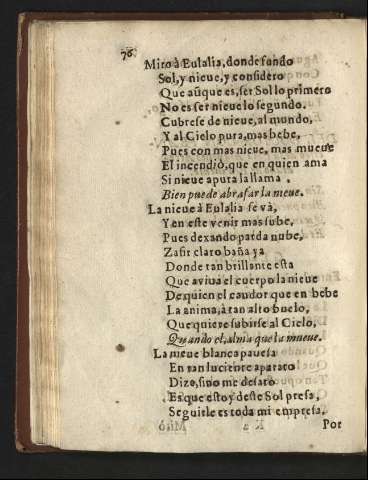 76
Miro à Eulalia, donde fundo
Sol, y nieue, y considero
Que aũque es, ser Sol lo primero
No es ser nieue lo segundo.
Cubrese de nieue, al mundo,
Y al Cielo pura, mas bebe,
Pues con mas nieue, mas mueue
El incendio, que en quien ama
Si nieue apura la llama.
Bien puede abrasar la nieue.
La nieue à Eulalia se và,
Y en este venir mas sube,
Pues dexando parda nube,
Zafir claro baña ya
Donde tan brillante esta
Que aviua el cuerpo la nieue
De quien el candor que en bebe
La anima, à tan alto buelo,
Que quiere subirse al Cielo,
Quando el, alma que la mueue.
La nieue blanca pauesa
En tan luciente aparato
Dize, sino me desato
Es que estoy deste Sol presa,
Seguirle es toda mi empresa.
Por